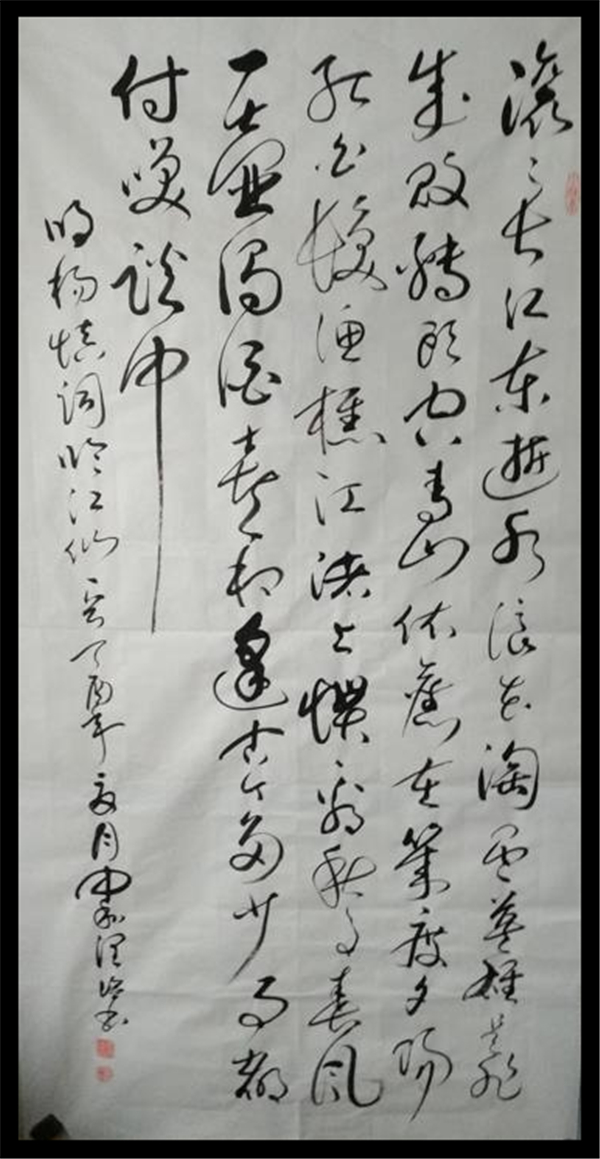 滚々长江东逝水浪花淘尽英雄是非
成败转头空青山依旧在几度夕阳
红白发渔樵江渚上惯看秋月春风
一壶浊酒喜相逢古今多少事都
付笑谈中
明杨慎词临江仙 丁酉年 月